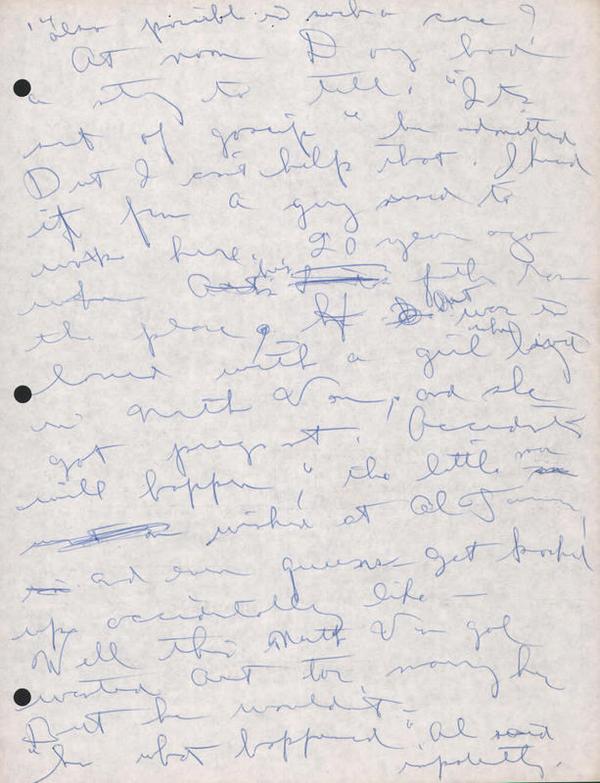 possible in such a case?
At noon D Og had
a story to tell. "Its
sort of gossip" he admitted
But I can't help that. I heard
it from a guy used to
work here, 20 year ago
when his father ran
the place, Art was in
love with a girl who lived
in North Van, and she
got pregnant. Accidents
will happen," the little man
winked at Al
and even queens get knocked
up accidentally like —
Well this North Van gal
wanted Art to marry her
But he wouldn't —
"So what happened" Al said
impatiently.